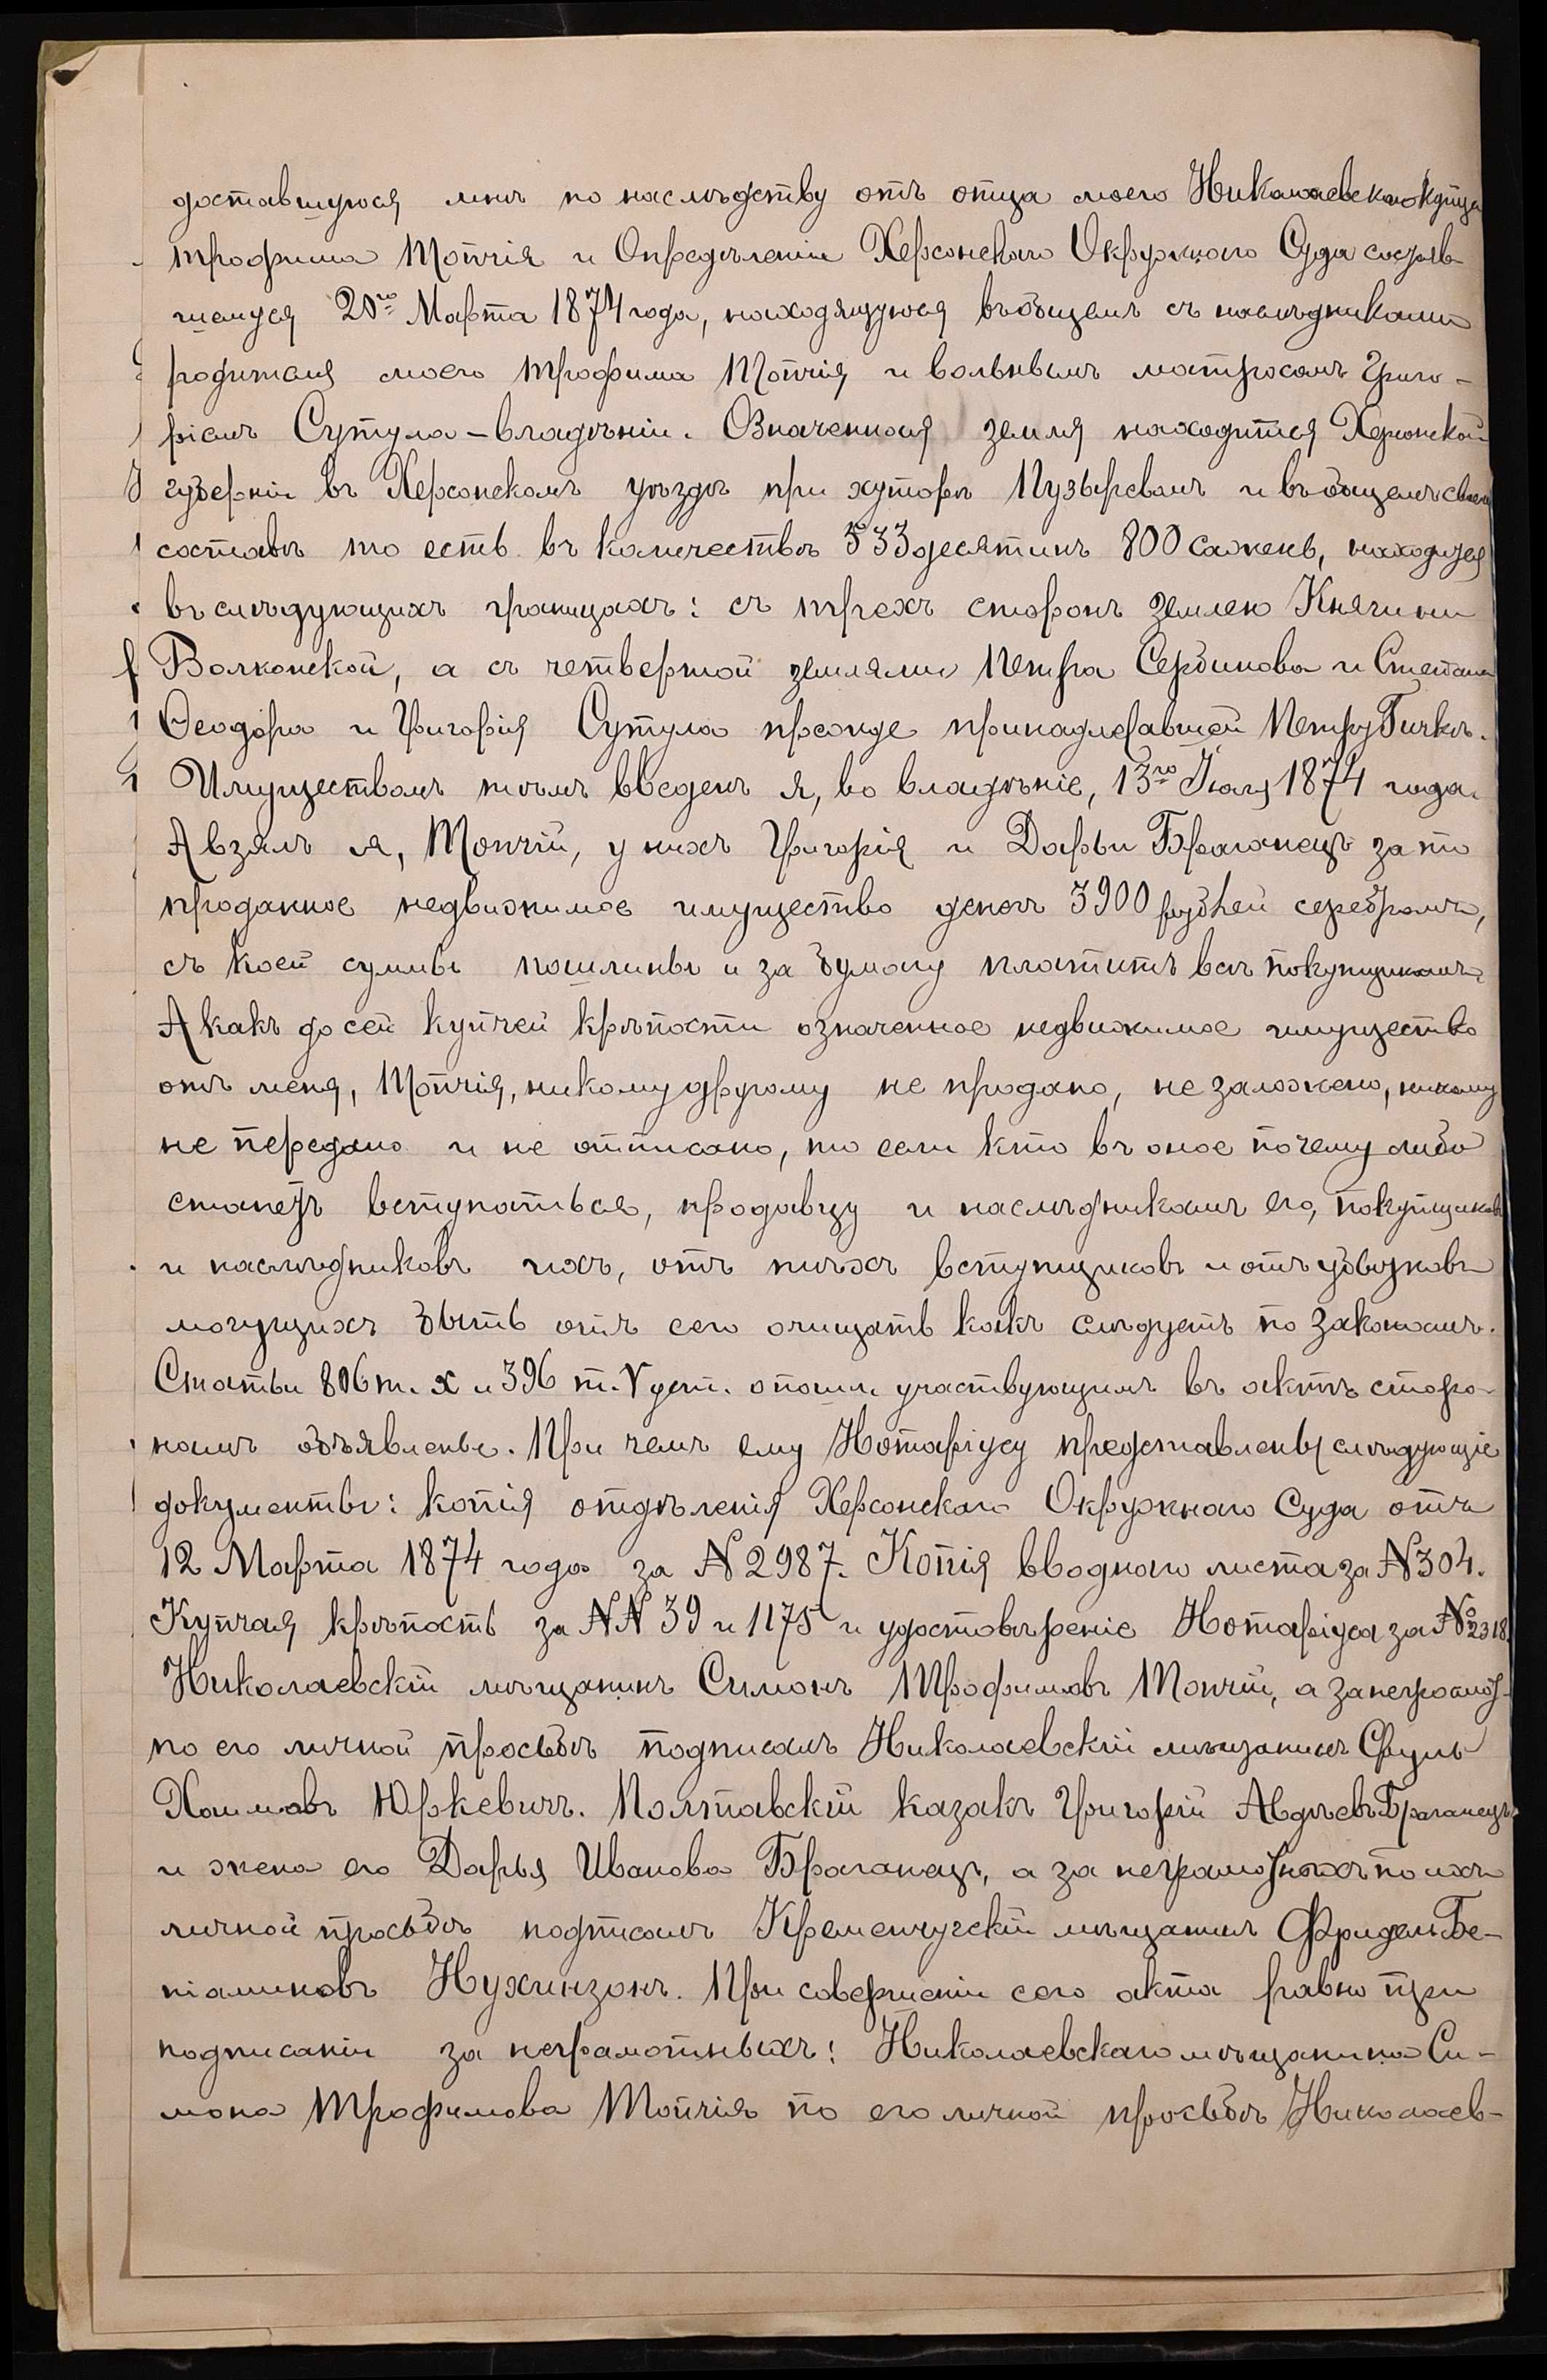 доставшуюся мнѣ по наслѣдству отъ отца моего Николаевскаго Купца
Трофима Топчія и Опредѣленіи Херсонскаго Окружнаго Суда состояв-
шемуся 20го Марта 1874 года, находящуюся въ общемъ съ наслѣдниками
родителя моего Трофима Топчія и вольнымъ матросомъ Григо-
ріемъ Сутула – владѣніи. Означенная земля находится Херсонской
губерніи въ Херсонскомъ уѣздѣ при хуторѣ Пузыревомъ и въ общемъ своемъ
составѣ то есть въ количествѣ 533 десятинъ 800 сажень, находится
въ слѣдующихъ границахъ: съ трехъ сторонъ землею Княгини
Волконской, а съ четвертой землями Петра Сербинова и Степана
Ѳеодора и Григорія Сутула прежде принадлежавшей Петру Гичкѣ.
Имуществомъ тѣмъ введенъ я, во владѣніе, 13го Іюля 1874 года.
А взялъ я, Топчій, у нихъ Григорія и Дарьи Браганецъ за то
проданное недвижимое имущество денегъ 3900 рублей серебромъ,
съ коей суммы пошлины и за бумагу платить всѣ покупщикамъ
А какъ до сей купчей крѣпости означенное недвижимое имущество
отъ меня, Топчія, никому другому не продано, не заложено, никому
не передано и не отписано, то если кто въ оное почему либо
станетъ вступаться, продавцу и наслѣдникамъ его, покупщиковъ
и наслѣдниковъ ихъ, отъ тѣхъ вступщиковъ и отъ убытковъ
могущихъ быть отъ сего очищать какъ слѣдуетъ по законамъ.
Статьи 806 т. X и 396 т. V уст. о пошл. участвующимъ въ актѣ сторо-
намъ объявлены. При чемъ ему Нотаріусу представлены слѣдующіе
документы: копія отдѣленія Херсонскаго Окружнаго Суда отъ
12 Марта 1874 года за N 2987. Копія вводнаго листа за N 304.
Купчая крѣпость за NN 39 и 1175 и удостовѣреніе Нотаріуса за № 2318.
Николаевскій мѣщанинъ Симонъ Трофимовъ Топчій, а за неграмот-
по его личной просьбѣ подписалъ Николаевскій мѣщанинъ Сруль
Хаимовъ Юркевичъ. Полтавскій казакъ Григорій Авдѣевъ Браганецъ
и жена его Дарья Иванова Браганецъ, а за неграмотныхъ по ихъ
личной просьбѣ подписалъ Кременчугскій мѣщанинъ Фридель Бе-
ніаминовъ Нухинзонъ. При совершеніи сего акта равно при
подписаніи за неграмотныхъ: Николаевскаго мѣщанина Си-
мона Трофимова Топчія по его личной просьбѣ Николаев-